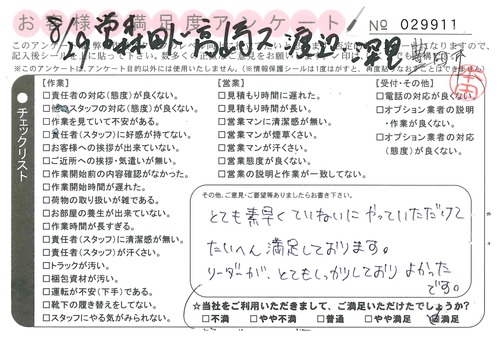 お客様満足度アンケート
№ 029911
8/29 営 森田 ド 高嶋 ス 渡辺・深里
記入後シールを上に貼って下さい。
※このアンケートは、アンケート目的以外には使用いたしません。(※情報保護シールは1度はがすと、再度貼りなおすことはできません)
チェックリスト
【作業】
□責任者の対応(態度)が良くない。
□他のスタッフの対応(態度)が良くない。
□作業を見ていて不安がある。
□責任者(スタッフ)に好感が持てない。
□お客様への挨拶が出来ていない。
□ご近所への挨拶・気遣いが無い。
□作業開始前の内容確認がなかった。
□作業開始時間が遅れた。
□荷物の取り扱いが雑である。
□お部屋の養生が出来ていない。
□作業時間が長すぎる。
□責任者(スタッフ)に清潔感が無い。
□責任者(スタッフ)が汗くさい。
□トラックが汚い。
□梱包資材が汚い。
□運転が不安(下手)である。
□靴下の履き替えをしてない。
□スタッフにやる気がみられない。
【営業】
□見積もり時間に遅れた。
□見積もり時間が長い。
□営業マンに清潔感が無い。
□営業マンが煙草くさい。
□営業マンが汗くさい。
□営業態度が良くない。
□営業の説明と作業が一致してない。
【受付・その他】
□電話の対応が良くない
□オプション業者の説明・作業が良くない。
□オプション業者の対応(態度)が良くない。
その他、ご意見・ご要望等ありましたらお書き下さい。
とても素早くていねいにやっていただけて
たいへん満足しております。
リーダーが、とてもしっかりしており よかった
です。
☆当社をご利用いただきまして、ご満足いただけたでしょうか?
□不満 □やや不満 □普通 □やや満足 ☑満足